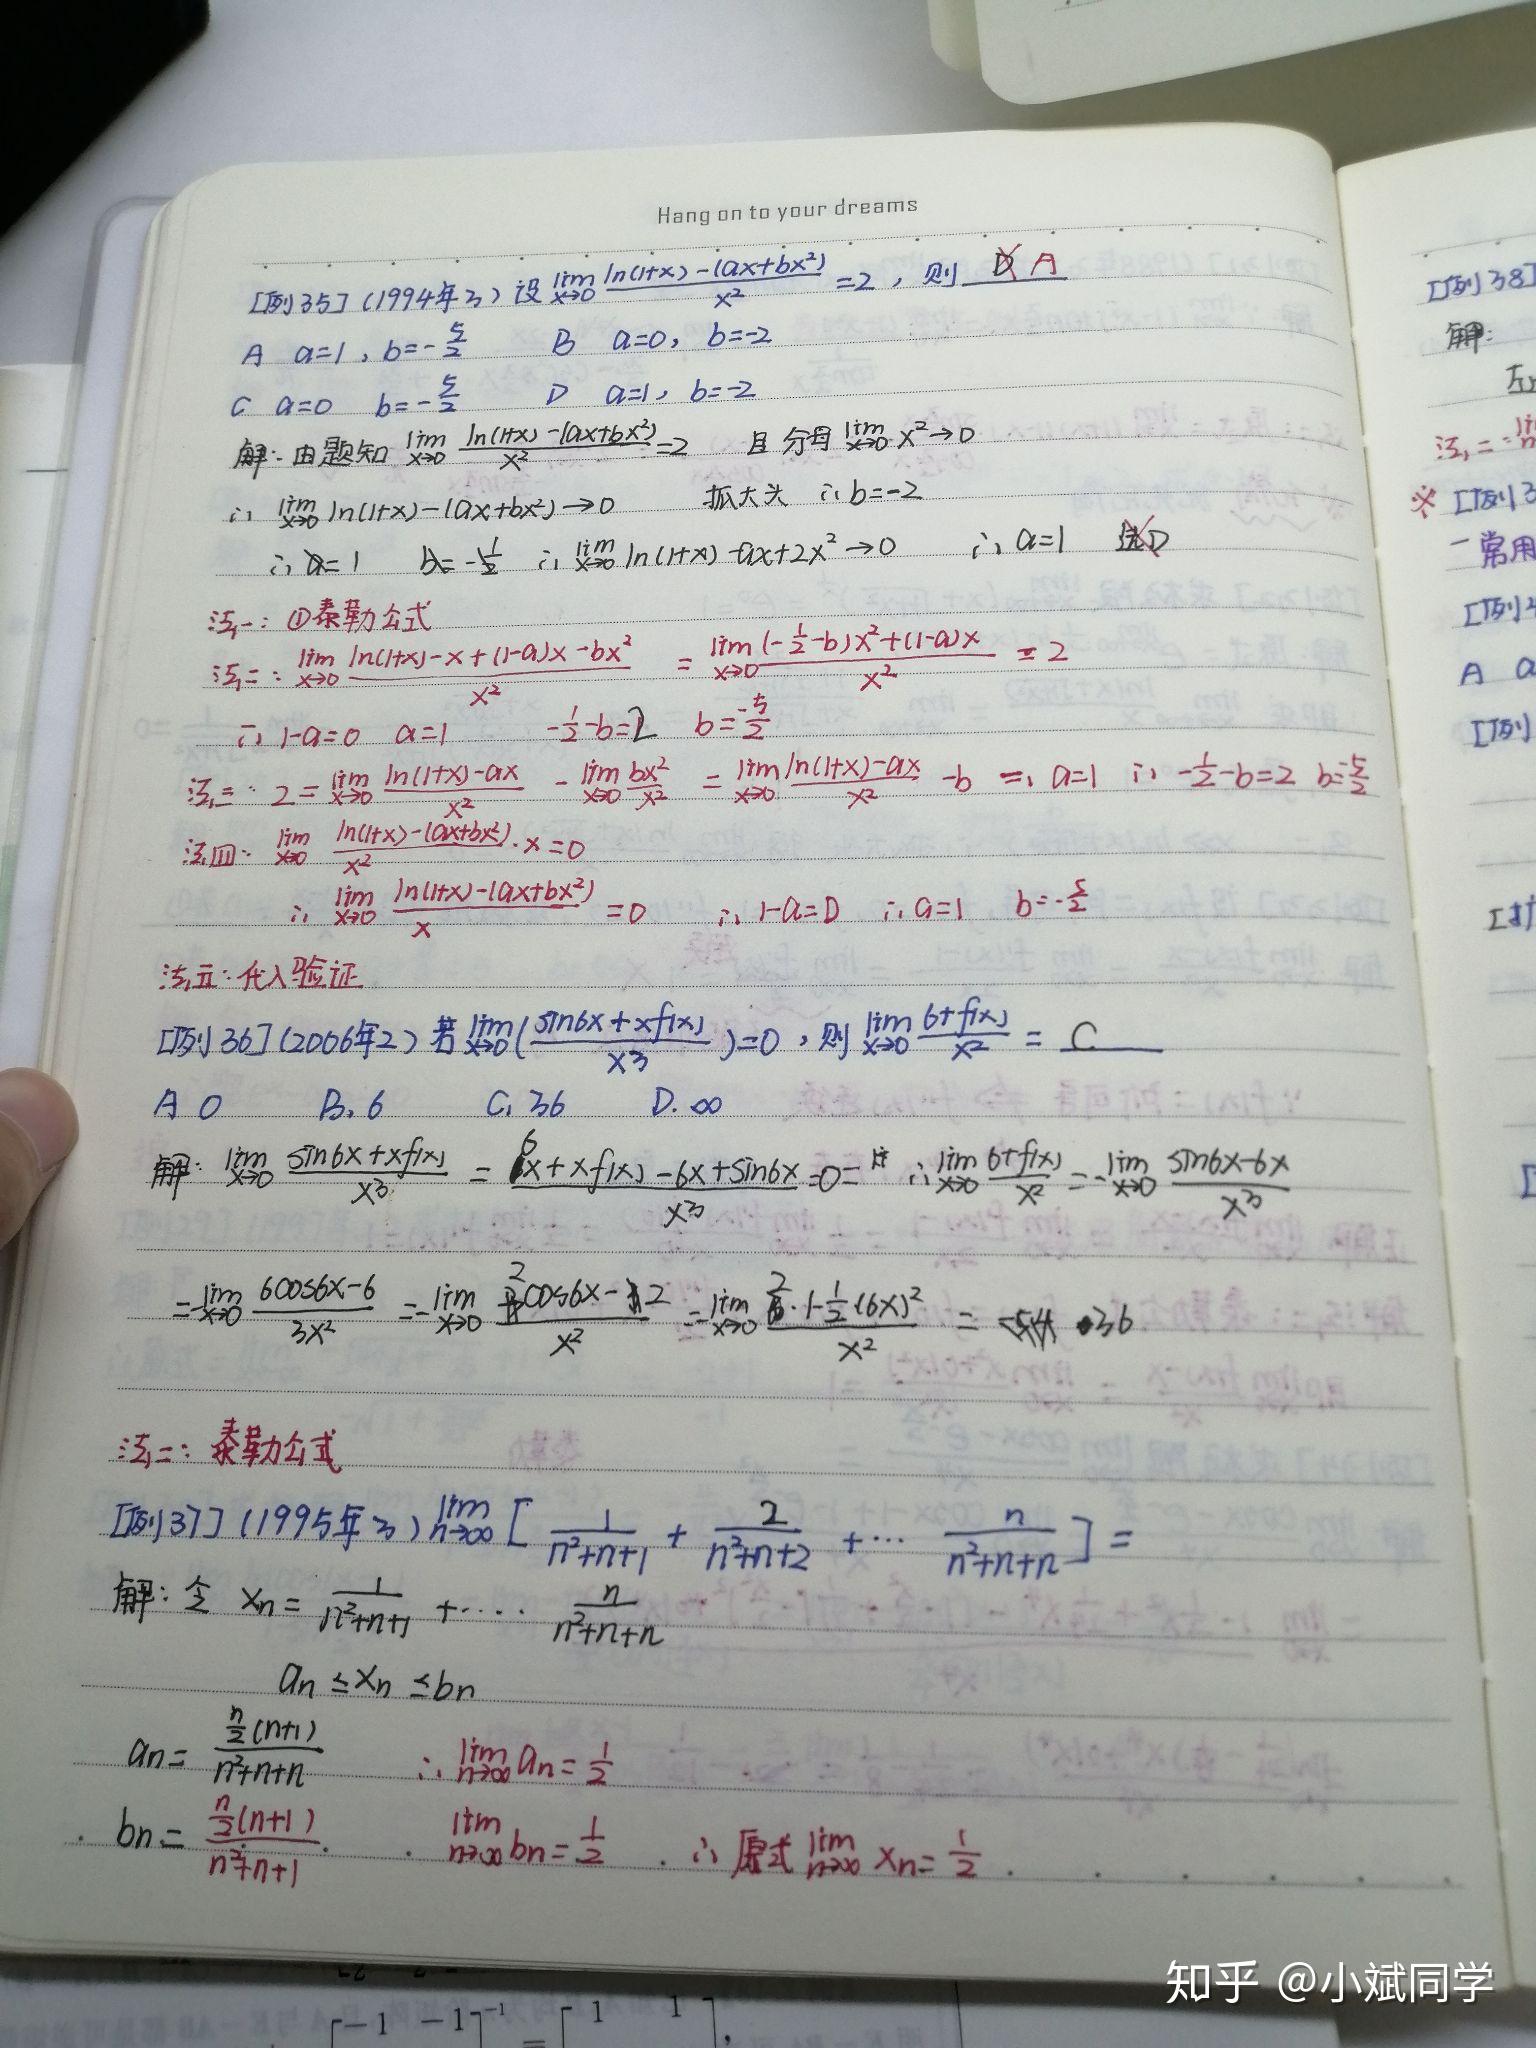 Hang on to your dreams
[例35](1994年3) 设 lim x→0 (ln(1+x)-(ax+bx²))/x² =2, 则 D A
A a=1, b=-5/2 B a=0, b=-2
C a=0 b=-5/2 D a=1, b=-2
解:由题知 lim x→0 (ln(1+x)-(ax+bx²))/x² =2 且分母 lim x→0 x²→0
∴ lim x→0 ln(1+x)-(ax+bx²)→0 抓大头 ∴b=-2
∴a=1 b=-1/2 ∴ lim x→0 ln(1+x)-ax+2x²→0 ∴a=1 选D
法一:①泰勒公式
法二: lim x→0 (ln(1+x)-x+(1-a)x-bx²)/x² = lim x→0 ((-1/2-b)x²+(1-a)x)/x² =2
∴1-a=0 a=1 -1/2-b=2 b=-5/2
法三: 2= lim x→0 (ln(1+x)-ax)/x² - lim x→0 bx²/x² = lim x→0 (ln(1+x)-ax)/x² -b =, a=1 ∴-1/2-b=2 b=-5/2
法四: lim x→0 (ln(1+x)-(ax+bx²))/x² ·x=0
∴ lim x→0 (ln(1+x)-(ax+bx²))/x =0 ∴1-a=0 ∴a=1 b=-5/2
法五:代入验证
[例36](2006年2) 若 lim x→0 ((sin6x+xf(x))/x³)=0, 则 lim x→0 (6+f(x))/x² = C
A 0 B. 6 C. 36 D. ∞
解: lim x→0 (sin6x+xf(x))/x³ = (6x+xf(x)-6x+sin6x)/x³ =0= ∴ lim x→0 (6+f(x))/x² =- lim x→0 (sin6x-6x)/x³
=- lim x→0 (6cos6x-6)/3x² =- lim x→0 (2cos6x-2)/x² =- lim x→0 (2·1-1/2(6x)²)/x² = 36
法二:泰勒公式
[例37](1995年3) lim n→∞ [1/(n²+n+1) + 2/(n²+n+2) +… n/(n²+n+n)] =
解:令 xn= 1/(n²+n+1) +…. n/(n²+n+n)
an≤xn≤bn
an= (n/2(n+1))/(n²+n+n) ∴ lim n→∞ an=1/2
bn= (n/2(n+1))/(n²+n+1) lim n→∞ bn=1/2 ∴原式 lim n→∞ xn=1/2
[例38]
解:
一常用
A a
知乎 @小斌同学
[-1 -1]⁻¹ = [1 1],